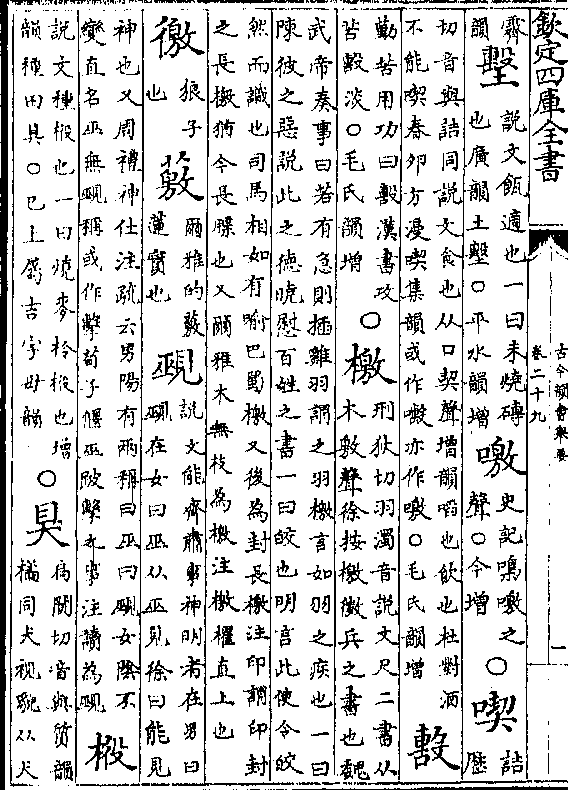 欽定四庫全書
古今韻會舉要
卷二十九
一
齊
韻
墼
說文瓴適也一曰未燒磚
也廣韻土墼○平水韻增
噭
史記鳴噭之
聲○今增
○喫
詰
歷
切音與詰同說文食也从口契聲增韻啗也飲也杜對酒
不能喫春卯方漫喫集韻或作噄亦作噭○毛氏韻增
毄
勤苦用功曰毄漢書攻
苦毄淡○毛氏韻增
○檄
刑狄切羽濁音說文尺二書从
木敫聲徐按檄徵兵之書也魏
武帝奏事曰若有急則插雞羽謂之羽檄言如羽之疾也一曰
陳彼之惡說此之德曉慰百姓之書一曰皎也明言此使令皎
然而識也司馬相如有喻巴蜀檄又後為封長檄注印謂印封
之長檄猶今長牒也又爾雅木無枝為檄注檄櫂直上也
徼
狼子
也
薂
爾雅的薂
蓮實也
覡
說文能齊肅事神明者在男曰
覡在女曰巫从巫見徐曰能見
神也又周禮神仕注疏云男陽有兩稱曰巫曰覡女陰不
變直名巫無覡稱或作擊荀子傴巫跛擊之事注讀為覡
椴
說文種椴也一曰燒麥柃椴也增
韻種田具○已上屬吉字母韻
○狊
扃闃切音與質韻
橘同犬視貌从犬